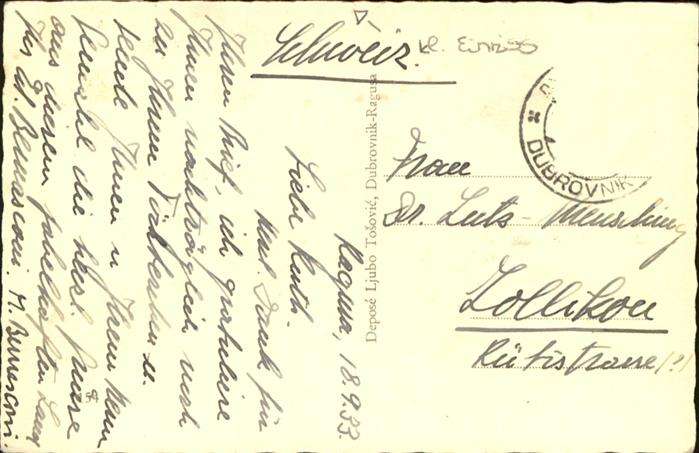 Ragusa, 18.9.33.
Liebe Ruth.
Viel. Dank für
Ihren Brief, ich gratuliere
Ihnen nachträglich noch
zu Ihrem Töchterchen u.
sende Ihnen u. Ihrem Mann
herzlichst die
aus diesem fabelhaften Land
Ihre Ed. Bernasconi. M. Bernasconi.
Schweiz.
kl.
Deposé Ljubo Tošović, Dubrovnik-Ragusa
DUBROVNIK
Frau
Dr. Lutz-
Zollikon
Rütistrasse (?)
54